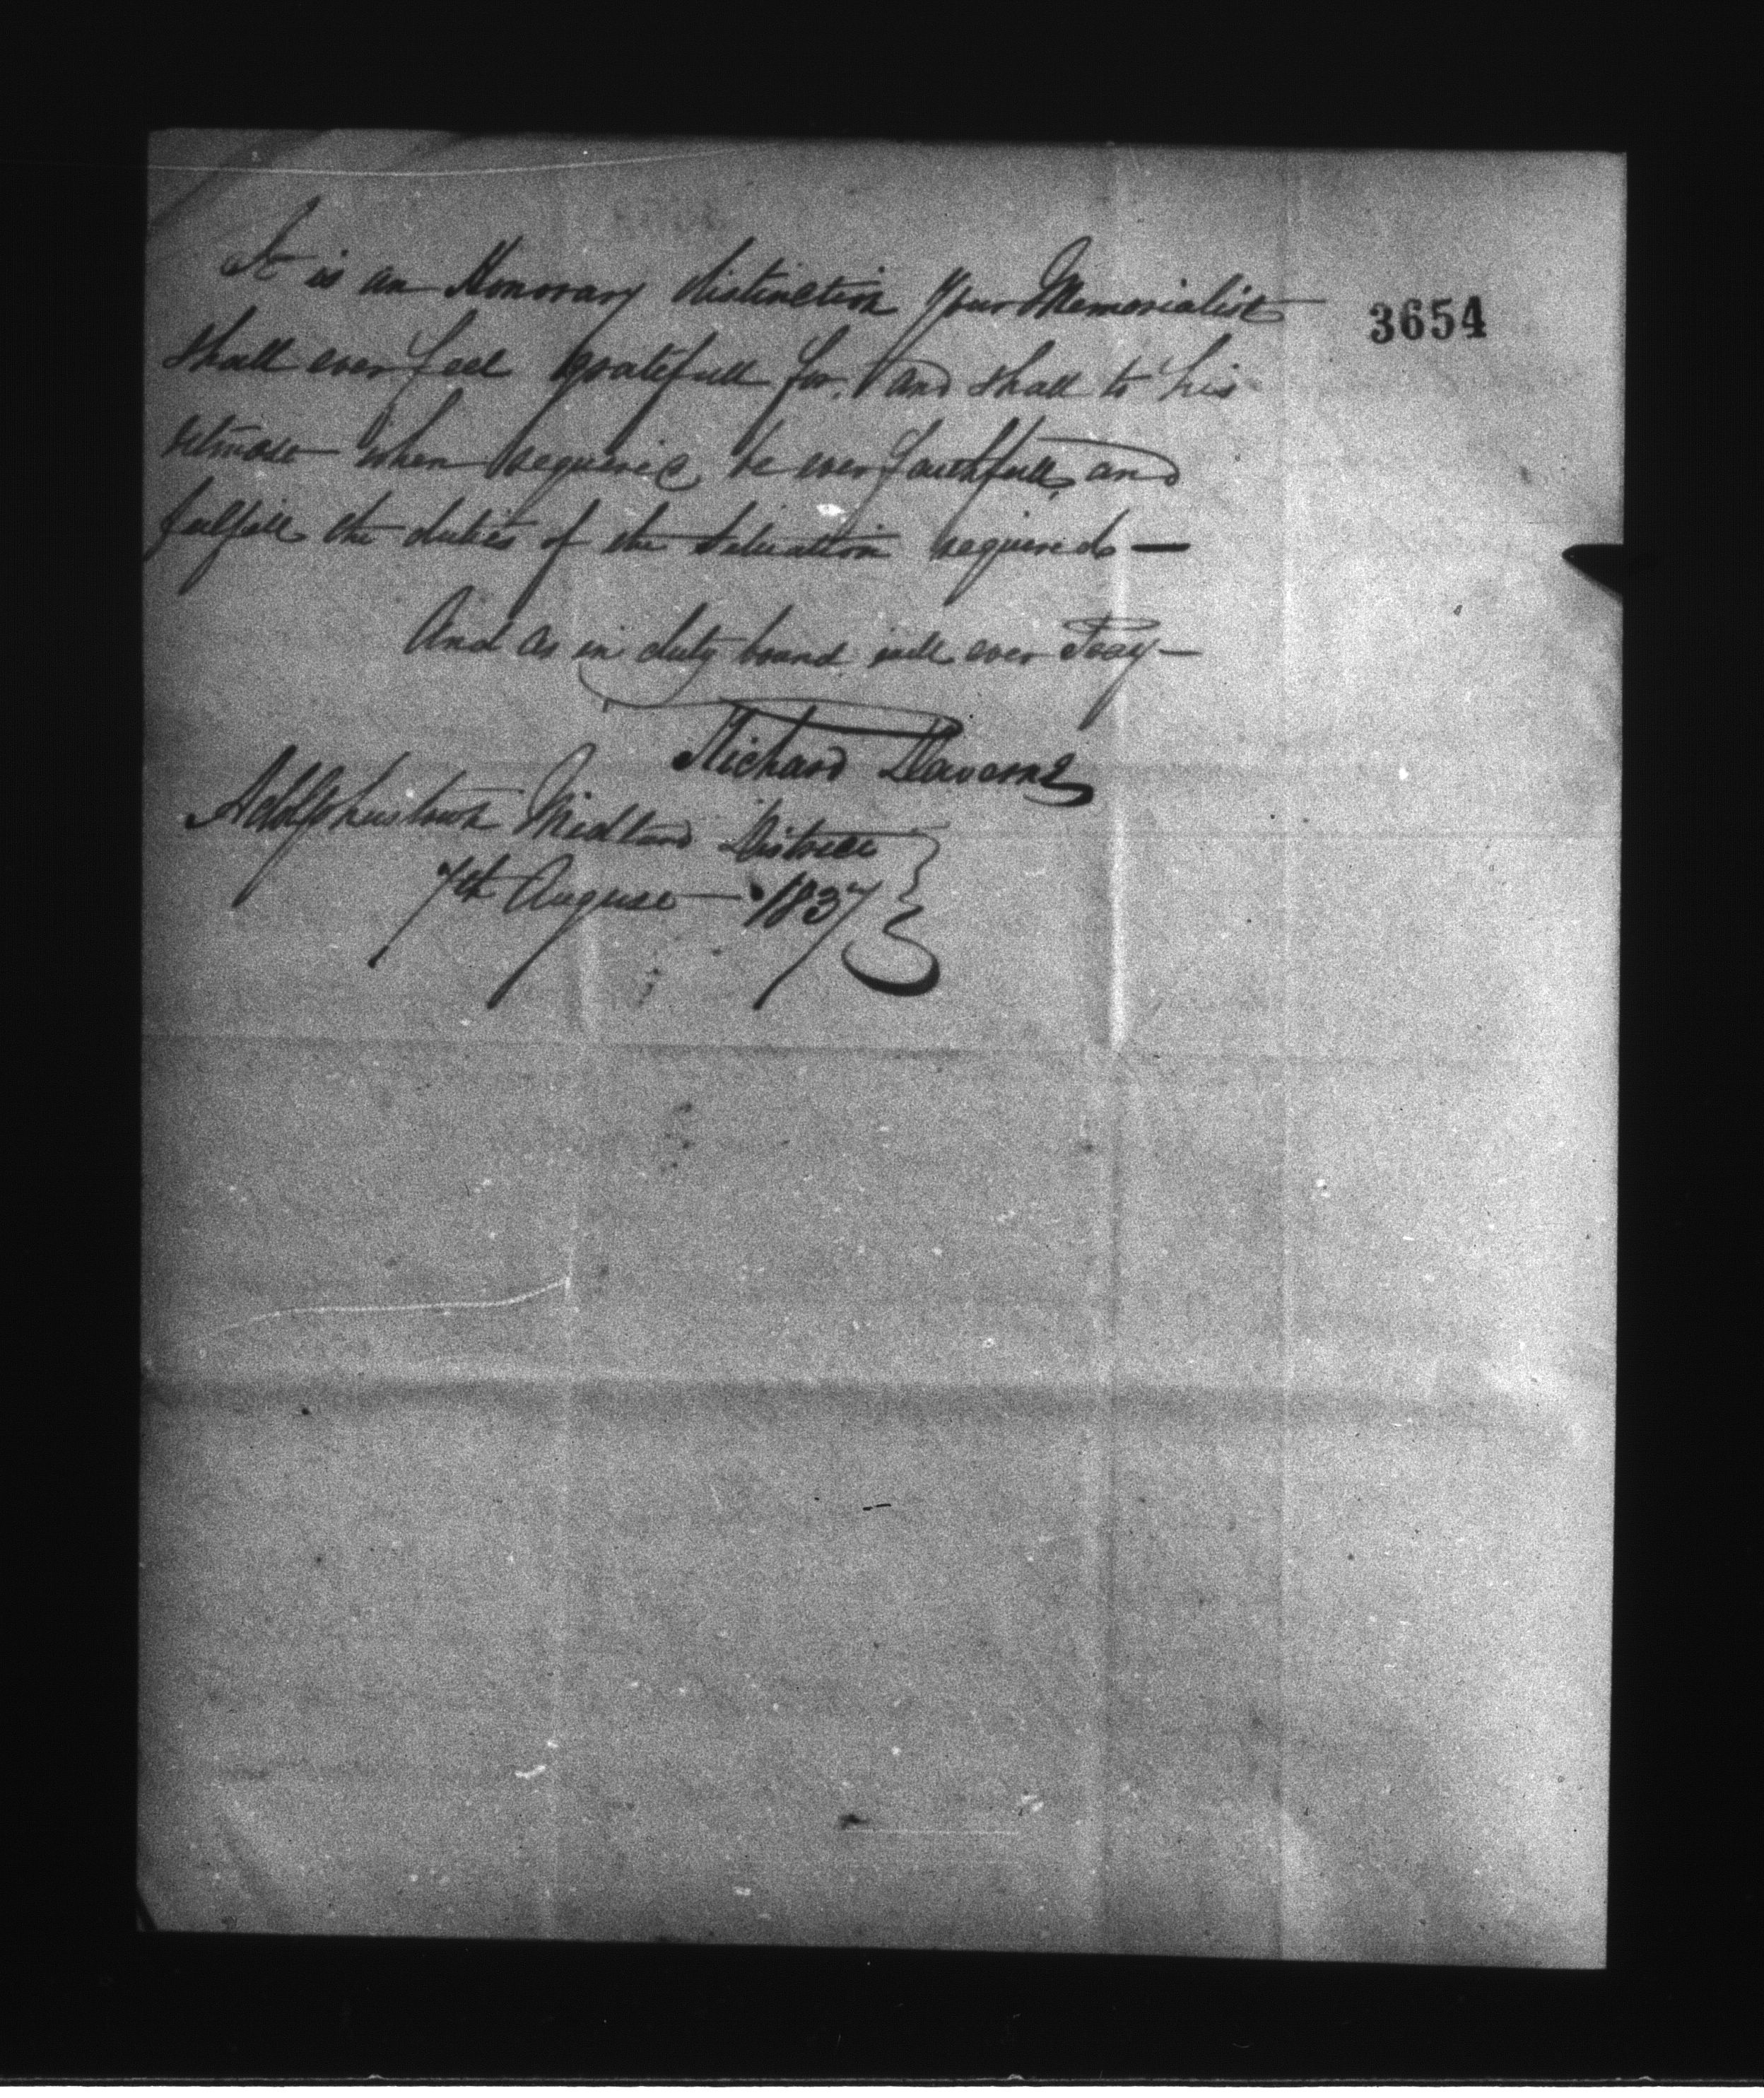 3654
It is an Honorary distinction Your Memorialist
shall ever feel gratefull for. and shall to his
utmost when required be ever faithfull, and
fulfill the duties of the Situation required —
And as in duty bound will ever Pray —
Richard Davern
Adolphustown Midland District
7th August — 1837